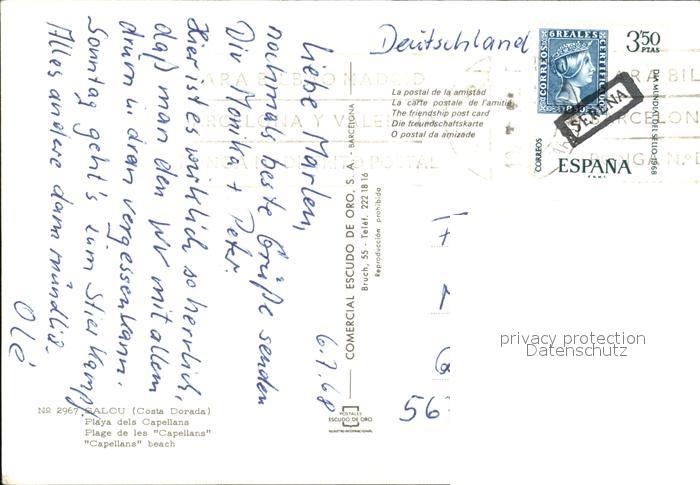 6.7.68
Liebe Marlen,
nochmals beste Grüße senden
Dir Monika + Peter.
Hier ist es wirklich so herrlich,
daß man den WV mit allem
drum u. dran vergessen kann.
Sonntag geht's zum Stierkampf.
Alles andere dann mündlich.
Olé
Deutschland
La postal de la amistad
La carte postale de l'amitié
The friendship post card
Die freundschaftskarte
O postal da amizade
COMERCIAL ESCUDO DE ORO, S. A. - BARCELONA
Bruch, 55 - Teléf. 222 18 16
Reproducción prohibida
POSTALES
ESCUDO DE ORO
CORREOS 6 REALES CERTIFICADO
1850
3'50
PTAS
DIA MUNDIAL DEL SELLO-1968
CORREOS
ESPAÑA
F.N.M.T.
PARA BILBAO MADRID
BARCELONA Y VALENCIA
PONGA N.º DISTRITO POSTAL
56
privacy protection
Datenschutz
Nº 2967 SALOU (Costa Dorada)
Playa dels Capellans
Plage de les "Capellans"
"Capellans" beach